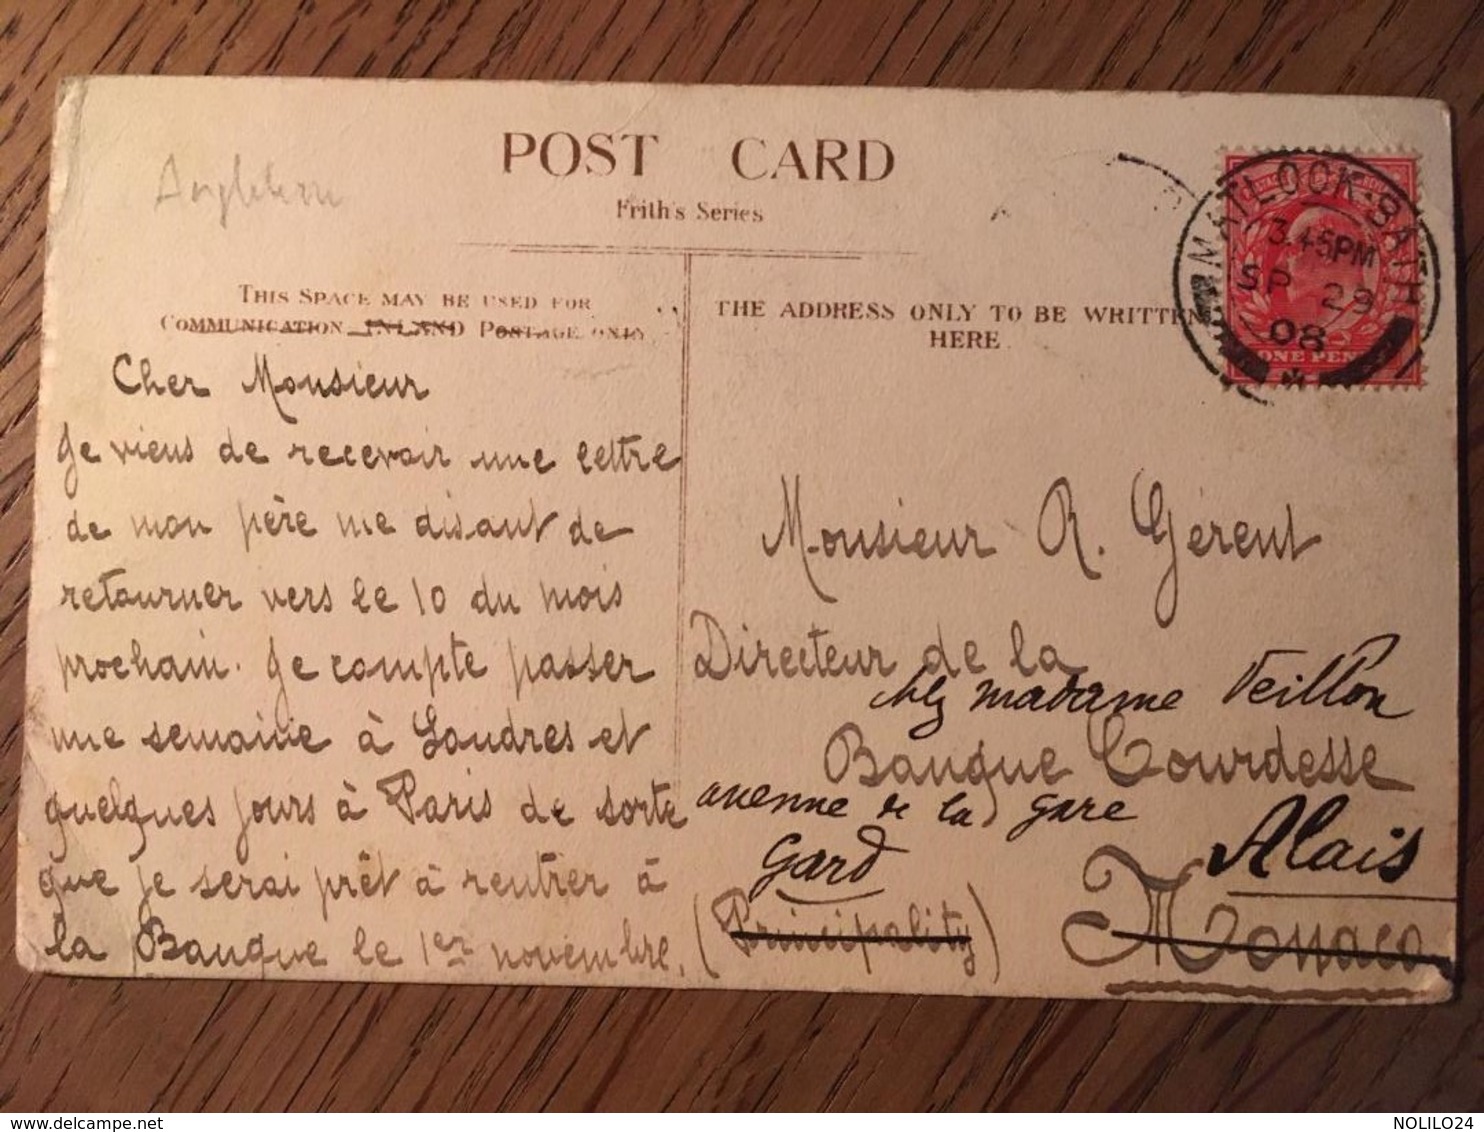 Angleterre
POST CARD
Frith's Series
THIS SPACE MAY BE USED FOR
COMMUNICATION INLAND POSTAGE ONLY
THE ADDRESS ONLY TO BE WRITTEN
HERE
MATLOCK-BATH
3.45PM
SP 29
08
ONE PENNY
Cher Monsieur
Je viens de recevoir une lettre
de mon père me disant de
retourner vers le 10 du mois
prochain. Je compte passer
une semaine à Londres et
quelques jours à Paris de sorte
que je serai prêt à rentrer à
la Banque le 1er novembre.
Monsieur R. Gérent
Directeur de la
chez madame Veillon
Banque Courdesse
avenue de la gare
Alais
Gard
(Principality) Monaco
NOLILO24